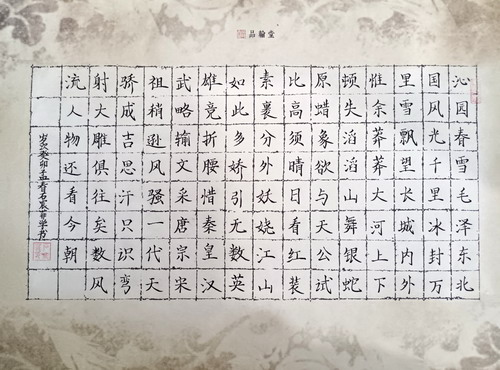 品翰堂
沁园春雪毛泽东北
国风光千里冰封万
里雪飘望长城内外
惟余莽莽大河上下
顿失滔滔山舞银蛇
原蜡象欲与天公试
比高须晴日看红装
素裹分外妖娆江山
如此多娇引无数英
雄竞折腰惜秦皇汉
武略输文采唐宗宋
祖稍逊风骚一代天
骄成吉思汗只识弯
射大雕俱往矣数风
流人物还看今朝
岁次癸卯孟春